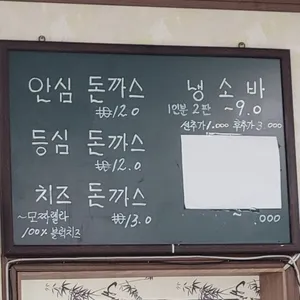 안심 돈까스
₩12.0
등심 돈까스
₩12.0
치즈 돈까스
~모짜렐라
100% 블럭치즈
₩13.0
냉소바
1인분 2판 ~9.0
선추가 1.000 후추가 3.000
~ .000